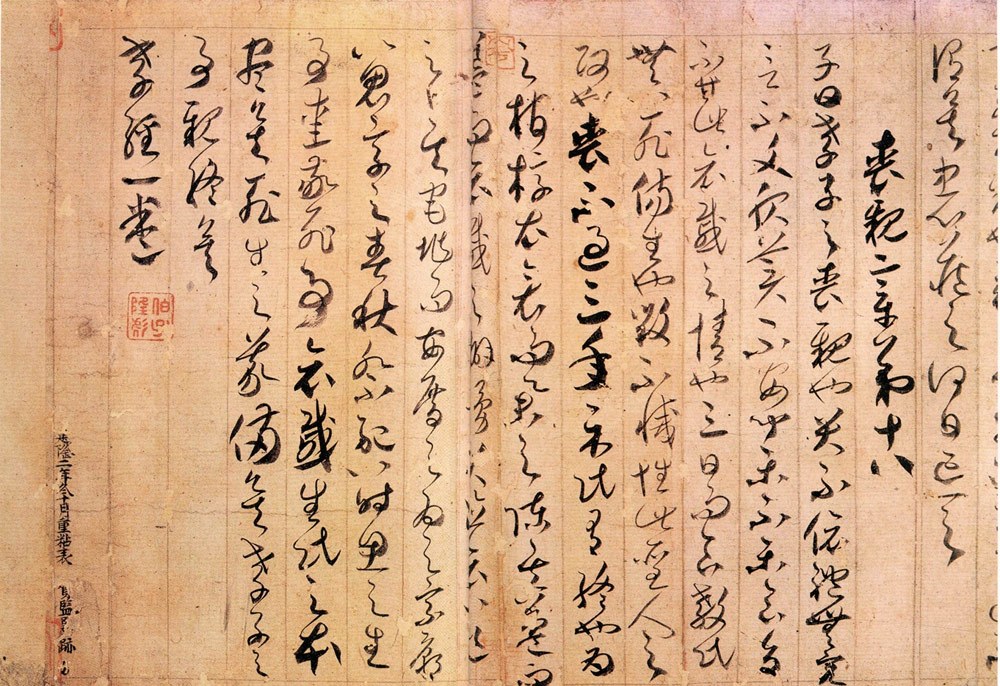 謂矣忠心藏之何日忘之
喪親章第十八
子曰孝子之喪親也哭不偯禮無容
言不文服美不安聞樂不樂食旨
不甘此哀慼之情也三日而食教民
無以死傷生也毀不滅性此聖人之
政也喪不過三年示民有終也為
之棺椁衣衾而舉之陳其簠簋而
哀慼之擗踊哭泣哀以送
之卜其宅兆而安厝之為之宗廟
以鬼享之春秋祭祀以時思之生
事愛敬死事哀慼生民之本
盡矣死生之義備矣孝子之
事親終矣
孝經一卷
建隆二年冬十月重粘表 賀監墨跡